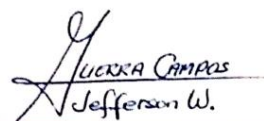 Guerra Campos
Jefferson W.